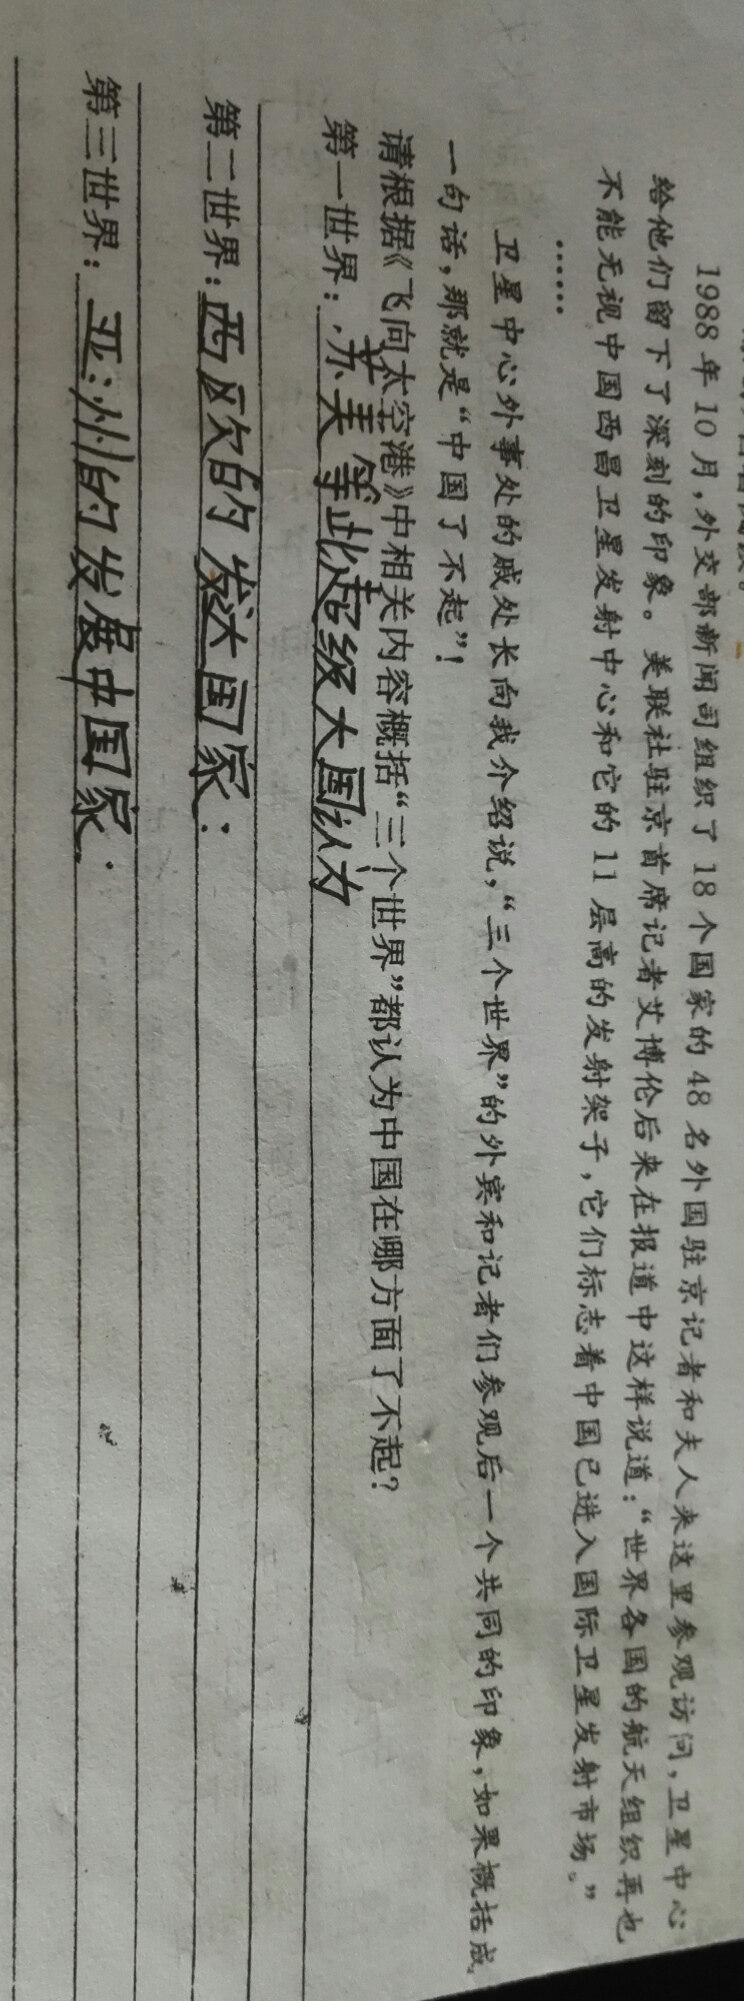 1988 年 10 月，外交部新闻司组织了 18 个国家的 48 名外国驻京记者和夫人来这里参观访问，卫星中心
给他们留下了深刻的印象。美联社驻京首席记者艾博伦后来在报道中这样说道：“世界各国的航天组织再也
不能无视中国西昌卫星发射中心和它的 11 层高的发射架子，它们标志着中国已进入国际卫星发射市场。”
……
卫星中心外事处的戚处长向我介绍说，“三个世界”的外宾和记者们参观后一个共同的印象，如果概括成
一句话，那就是“中国了不起”！
请根据《飞向太空港》中相关内容概括“三个世界”都认为中国在哪方面了不起？
第一世界：苏美等此超级大国认为
第二世界：西欧的发达国家：
第三世界：亚洲的发展中国家：